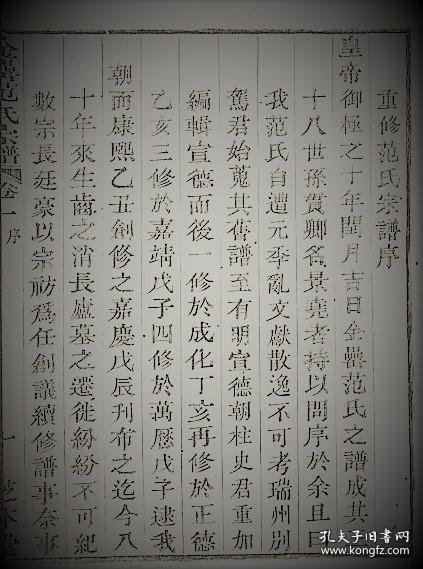 重修范氏宗譜序
皇帝御極之十年閏月吉日金罍范氏之譜成其
十八世孫賓卿名景堯者持以問序於余且曰
我范氏自遭元季亂文獻散逸不可考瑞州別
駕君始蒐其舊譜至有明宣德朝柱史君重加
編輯宣德而後一修於成化丁亥再修於正德
乙亥三修於嘉靖戊子四修於萬歷戊子逮我
朝而康熙乙丑創修之嘉慶戊辰刋布之迄今八
十年來生齒之消長廬墓之遷徙紛紛不可紀
數宗長廷豪以宗祊為任創議續修譜事奈事
金罍范氏宗譜 卷一 序
孔夫子旧书网
www.kongfz.com